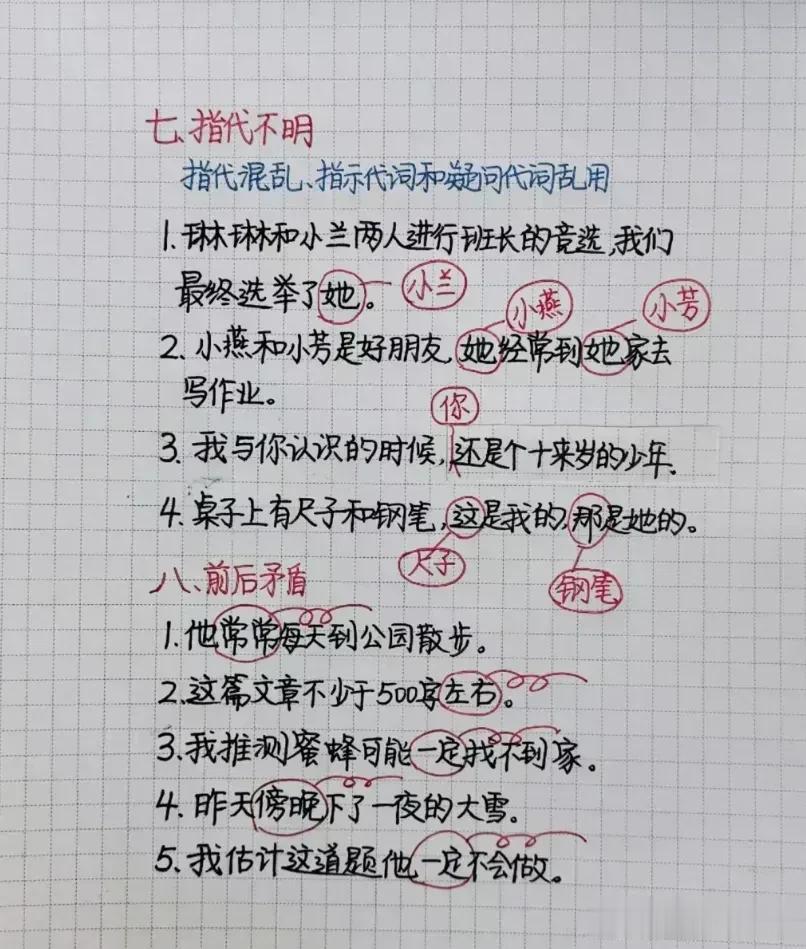 七、指代不明
指代混乱、指示代词和疑问代词乱用
1.琳琳和小兰两人进行班长的竞选,我们
最终选举了她。
小兰
小燕
小芳
2、小燕和小芳是好朋友,她经常到她家去
写作业。
你
3、我与你认识的时候,还是个十来岁的少年.
4、桌子上有尺子和钢笔,这是我的,那是她的。
尺子
钢笔
八、前后矛盾
1.他常常每天到公园散步。
2.这篇文章不少于500字左右。
3.我推测蜜蜂可能一定找不到家。
4、昨天傍晚下了一夜的大雪。
5、我估计这道题他一定不会做。